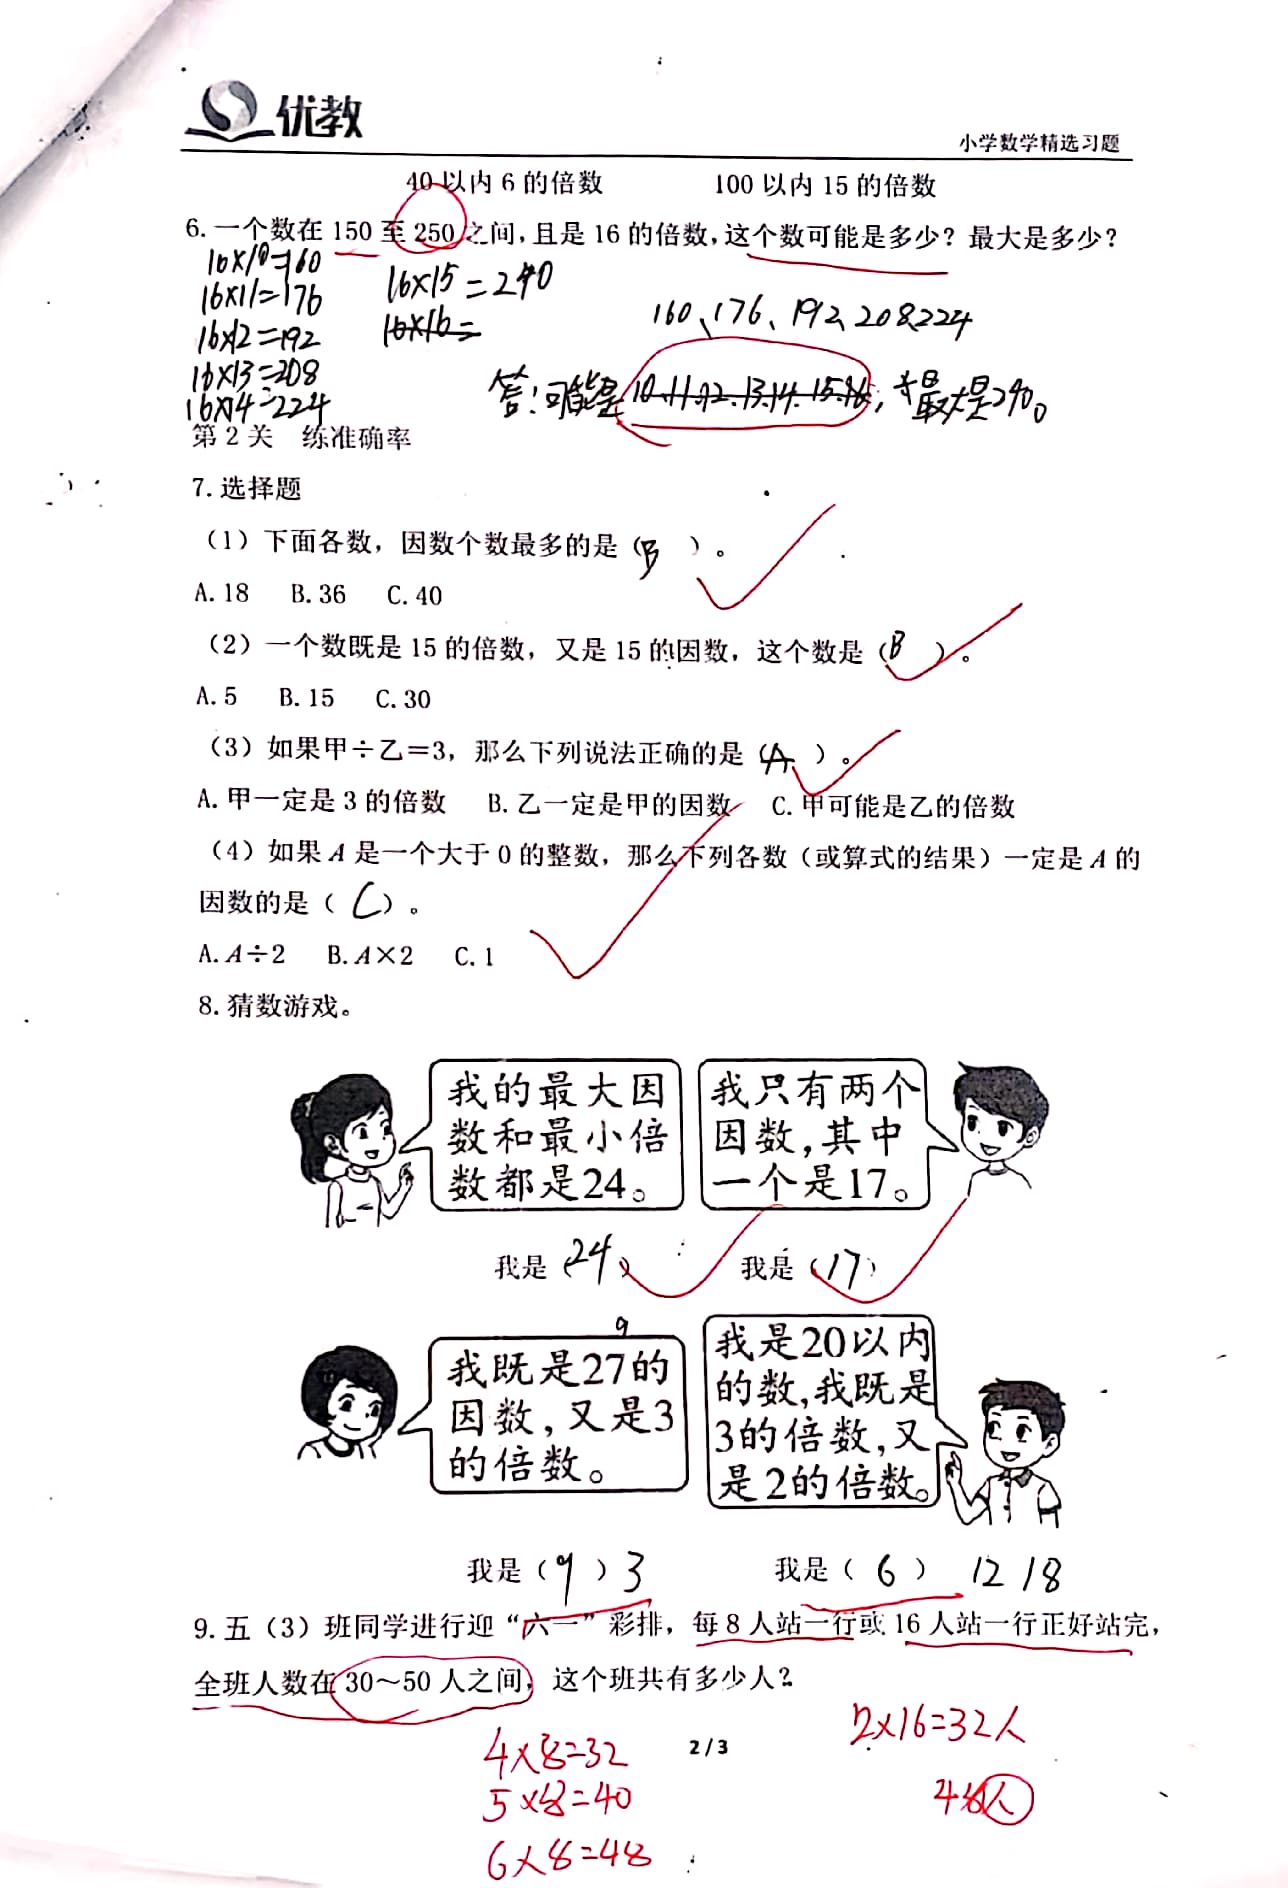 优教
小学数学精选习题
40 以内 6 的倍数 100 以内 15 的倍数
6. 一个数在 150 至 250 之间, 且是 16 的倍数, 这个数可能是多少? 最大是多少?
16×10=160
16×11=176
16×12=192
16×13=208
16×14=224
16×15=240
16×16=
160、176、192、208、224
答:可能是10.11.12.13.14.15.16, 最大是240。
第 2 关 练准确率
7. 选择题
(1) 下面各数, 因数个数最多的是 (B)。
A. 18 B. 36 C. 40
(2) 一个数既是 15 的倍数, 又是 15 的因数, 这个数是 (B)。
A. 5 B. 15 C. 30
(3) 如果甲÷乙=3, 那么下列说法正确的是 (A)。
A. 甲一定是 3 的倍数 B. 乙一定是甲的因数 C. 甲可能是乙的倍数
(4) 如果 A 是一个大于 0 的整数, 那么下列各数 (或算式的结果) 一定是 A 的
因数的是 (C)。
A. A÷2 B. A×2 C. 1
8. 猜数游戏。
我的最大因
数和最小倍
数都是24。
我只有两个
因数,其中
一个是17。
我是 (24)
我是 (17)
9
我既是27的
因数,又是3
的倍数。
我是20以内
的数,我既是
3的倍数,又
是2的倍数。
我是 (9) 3
我是 (6) 12 18
9. 五 (3) 班同学进行迎“六一”彩排, 每 8 人站一行或 16 人站一行正好站完,
全班人数在 30～50 人之间, 这个班共有多少人?
4×8=32
5×8=40
6×8=48
2/3
2×16=32人
48人